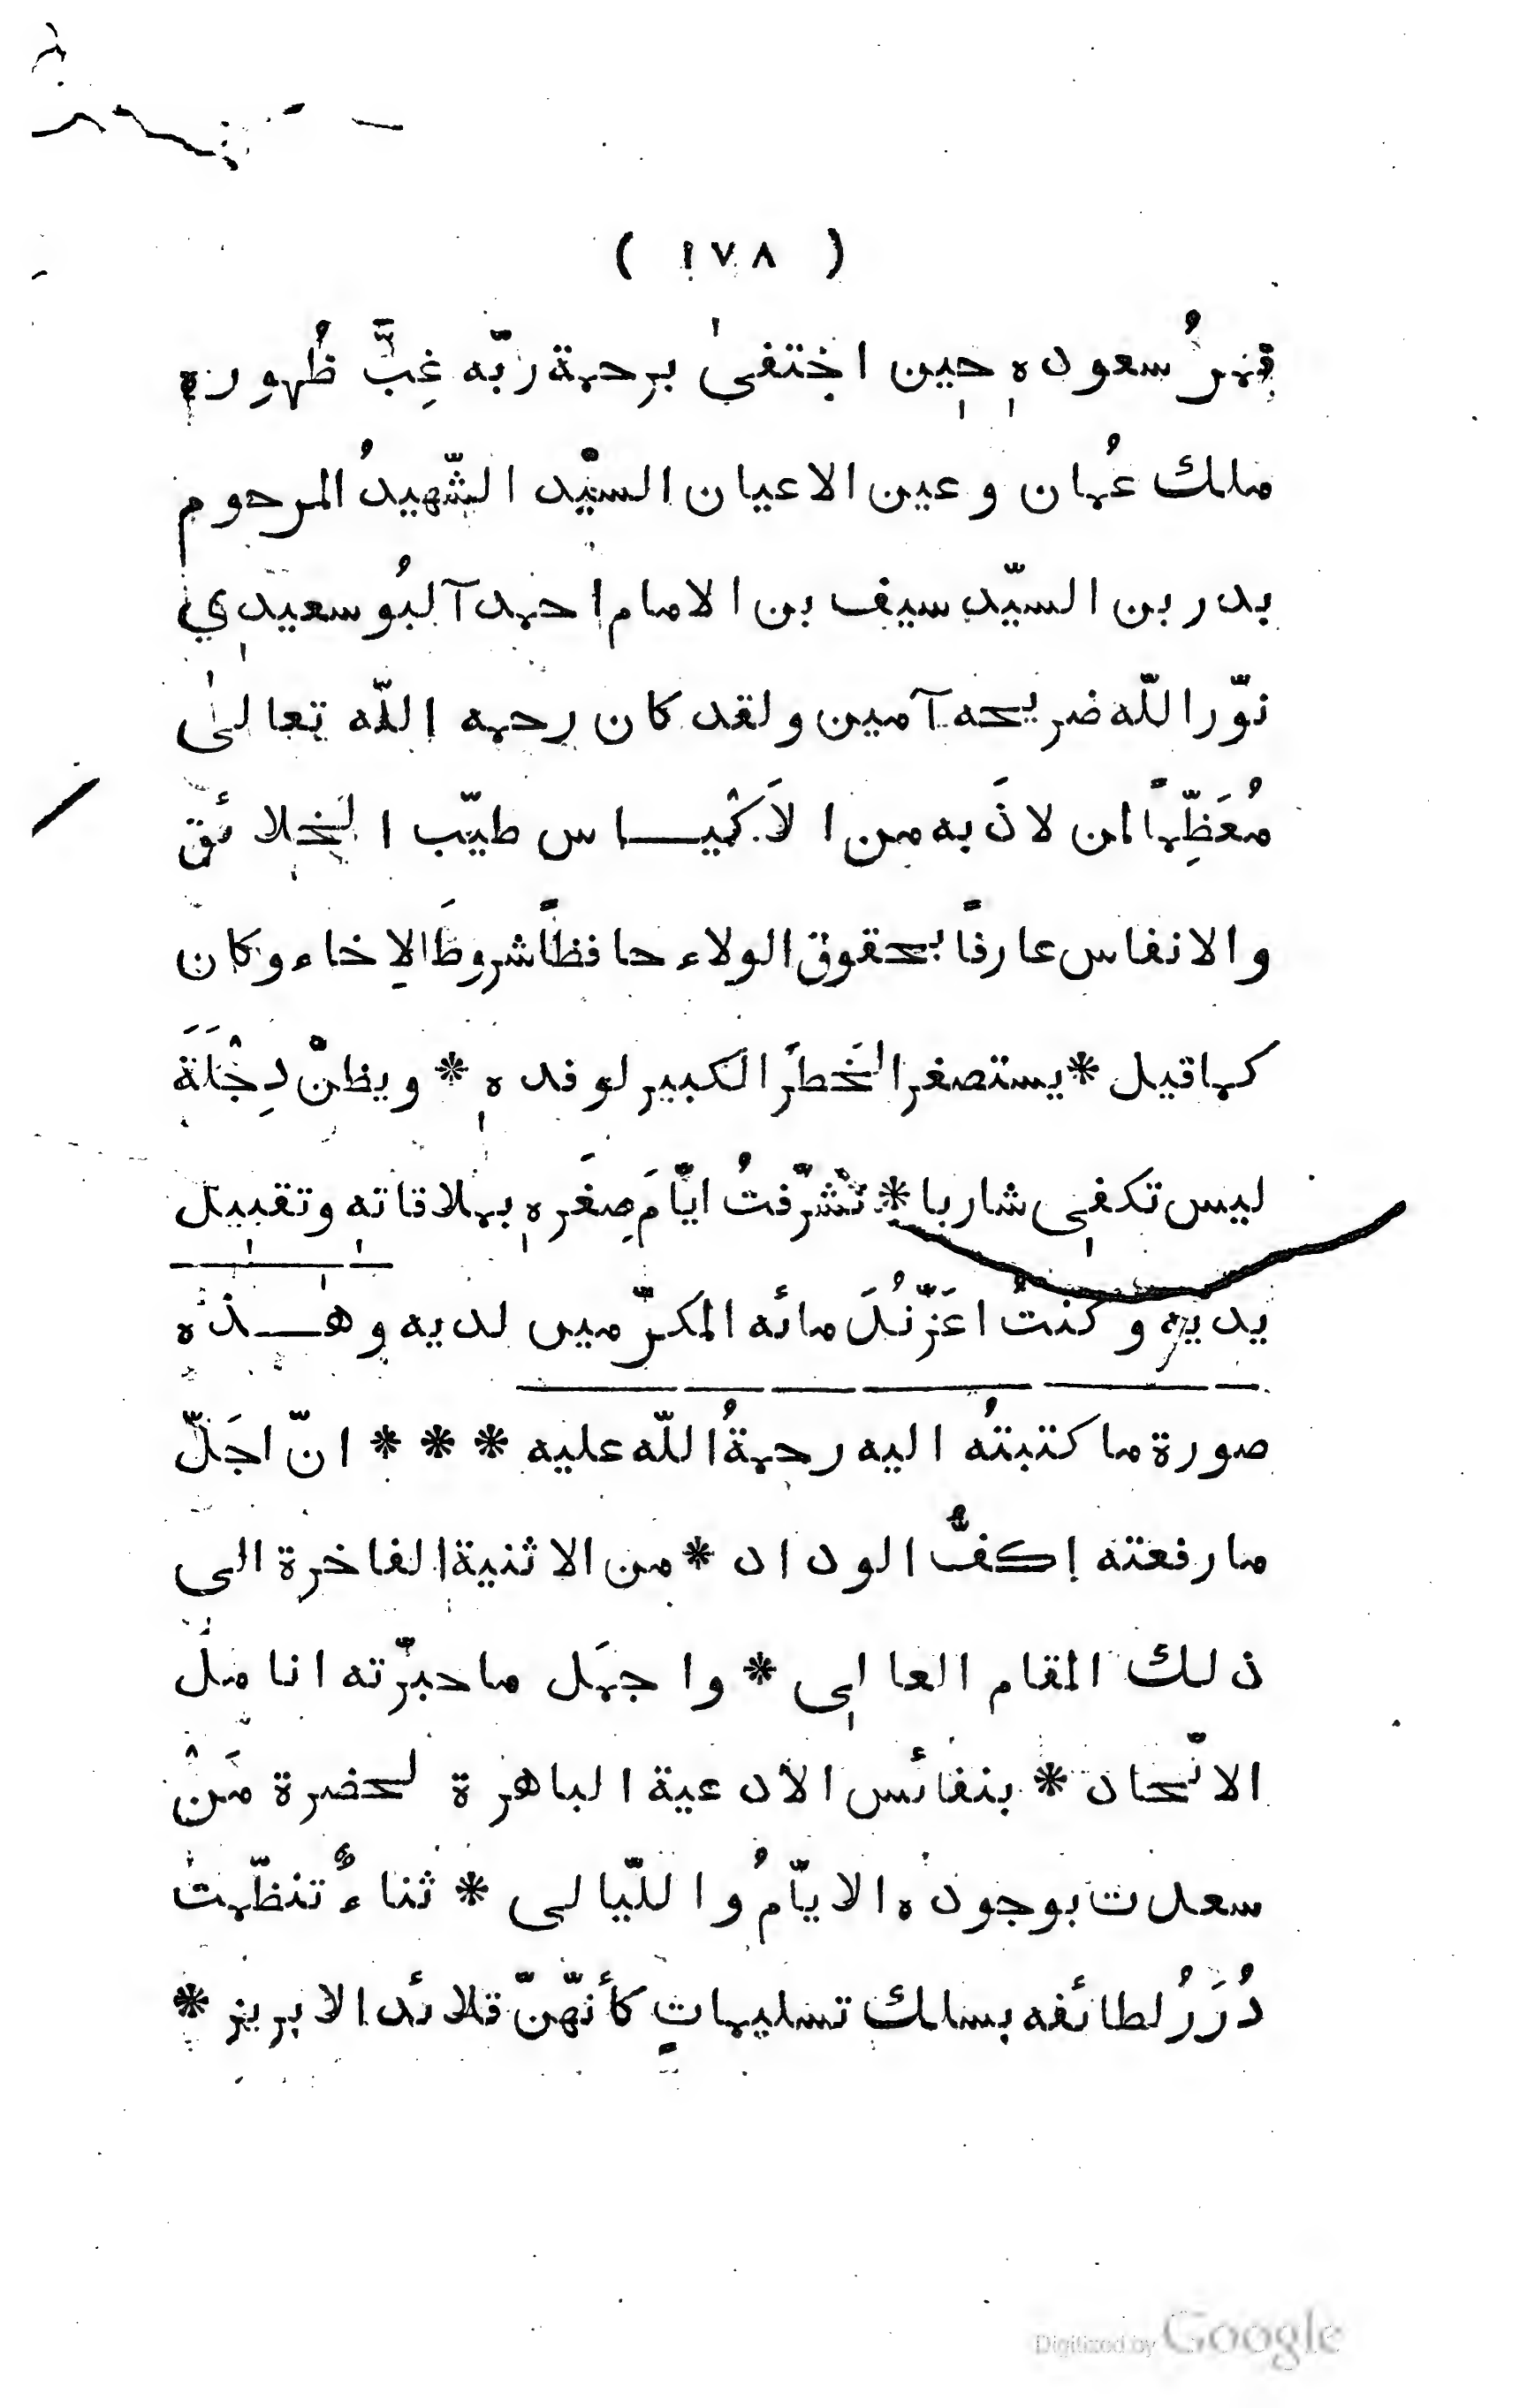 ( ١٧٨ )
قمرُ سعوده حين اختفىٰ برحمة ربّه غِبَّ ظُهوره
ملك عُمان وعين الاعيان السيّد الشّهيدُ المرحوم
بدر بن السيّد سيف بن الامام احمد آلبُوسعيدي
نوّر اللّه ضريحه آمين ولقد كان رحمه اللّه تعالىٰ
مُعَظِّماً لمن لاذَ به من الاَكْيــاس طيّب الخلائق
والانفاس عارفاً بحقوق الولاء حافظاً شروطَ الإخاء وكان
كما قيل * يستصغر الخَطَر الكبير لوفده * ويظنّ دِجْلَةَ
ليس تكفي شاربا * تشرّفتُ ايّامَ صِغَره بملاقاته وتقبيل
يديه وكنتُ اعَزّنُدَمائه المكرّمين لديه وهــذه
صورة ما كتبتُه اليه رحمةُ اللّه عليه * * * انّ اجَلّ
ما رفعته اكفُّ الوداد * من الاثنية الفاخرة الى
ذلك المقام العالي * واجمَل ما حبّرته انامل
الاتّحاد * بنفائس الأدعية الباهرة لحضرة مَنْ
سعدت بوجوده الايّامُ واللّيالى * ثناءٌ تنظّمت
دُرَرُ لطائفه بسلك تسليماتٍ كأنّهنّ قلائد الابريز *
Digitized by Google